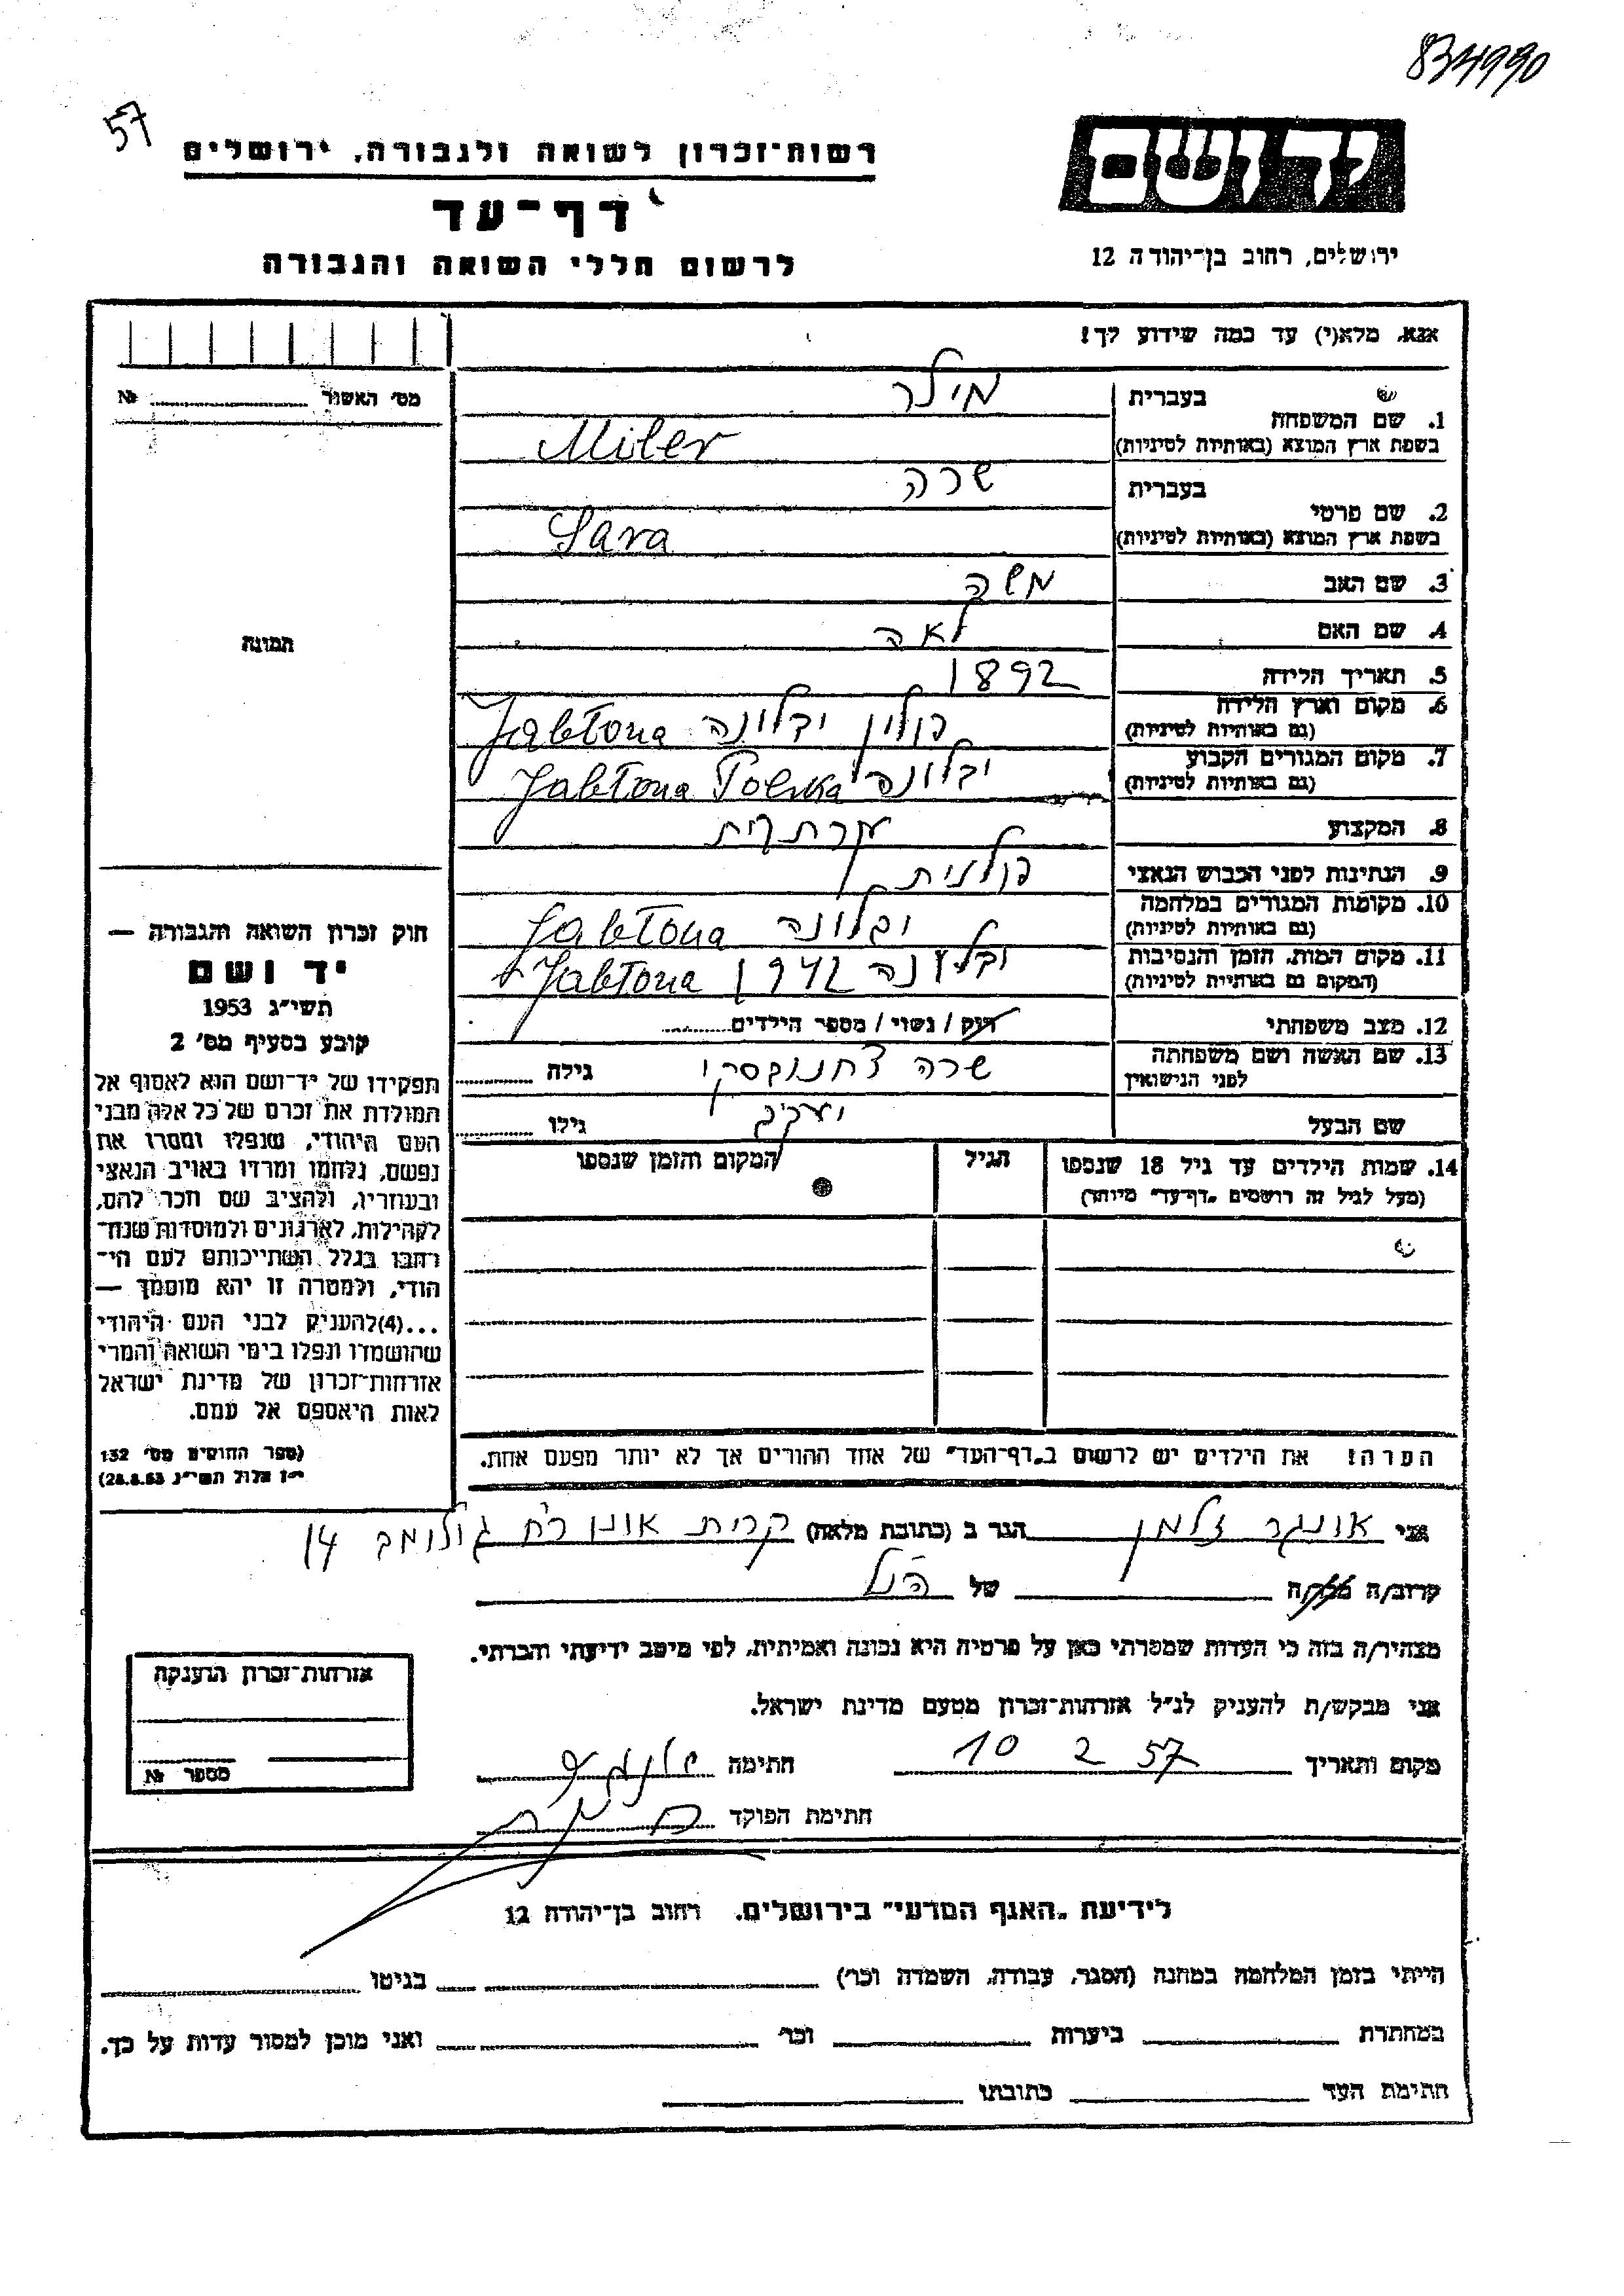 834990
57
יד ושם
רשות־זכרון לשואה ולגבורה, ירושלים
דף־עד
לרשום חללי השואה והגבורה
ירושלים, רחוב בן־יהודה 12
אנא, מלא(י) עד כמה שידוע לך!
מס' האשור № 
1. שם המשפחה
בעברית מילר
בשפת ארץ המוצא (באותיות לטיניות) Miler
2. שם פרטי
בעברית שרה
בשפת ארץ המוצא (באותיות לטיניות) Sara
3. שם האב משה
4. שם האם לאה
5. תאריך הלידה 1892
6. מקום וארץ הלידה (גם באותיות לטיניות) פולין יבלונה Jabłona
7. מקום המגורים הקבוע (גם באותיות לטיניות) יבלונה Jabłona Polska
8. המקצוע עקרת בית
9. הנתינות לפני הכבוש הנאצי פולנית
10. מקומות המגורים במלחמה (גם באותיות לטיניות) יבלונה Jabłona
11. מקום המות, הזמן והנסיבות (המקום גם באותיות לטיניות) יבלונה 1942 Jabłona
12. מצב משפחתי רוק / נשוי / מספר הילדים
13. שם האשה ושם משפחתה לפני הנישואין שרה גילה
שם הבעל יעקב גילו
14. שמות הילדים עד גיל 18 שנספו (מעל לגיל זה רושמים „דף־עד" מיוחד)
הגיל
המקום והזמן שנספו
הערה! את הילדים יש לרשום ב„דף־העד" של אחד ההורים אך לא יותר מפעם אחת.
תמונה
חוק זכרון השואה והגבורה —
יד ושם
תשי״ג 1953
קובע בסעיף מס' 2
תפקידו של יד־ושם הוא לאסוף אל
המולדת את זכרם של כל אלה מבני
העם היהודי, שנפלו ומסרו את
נפשם, נלחמו ומרדו באויב הנאצי
ובעוזריו, ולהציב שם וזכר להם,
לקהילות, לארגונים ולמוסדות שנח־
רבו בגלל השתייכותם לעם הי־
הודי, ולמטרה זו יהא מוסמך —
...(4) להעניק לבני העם היהודי
שהושמדו ונפלו בימי השואה והמרי
אזרחות־זכרון של מדינת ישראל
לאות היאספם אל עמם.
(ספר החוקים מס' 132
י״ז אלול תשי״ג 28.8.53)
אני אונגר זלמן הגר ב (כתובת מלאה) קרית אונו רח' גולומב 14
קרוב/ה מכר/ה של הנ״ל
מצהיר/ה בזה כי העדות שמסרתי כאן על פרטיה היא נכונה ואמיתית, לפי מיטב ידיעתי והכרתי.
אני מבקש/ת להעניק לנ״ל אזרחות־זכרון מטעם מדינת ישראל.
מקום ותאריך 10 2 57 חתימה
חתימת הפוקד
אזרחות־זכרון הוענקה
מספר №
לידיעת „האגף המדעי" בירושלים, רחוב בן־יהודה 12
הייתי בזמן המלחמה במחנה (הסגר, עבודה, השמדה וכו') בגיטו
במחתרת ביערות וכו' ואני מוכן למסור עדות על כך.
חתימת העד כתובתו